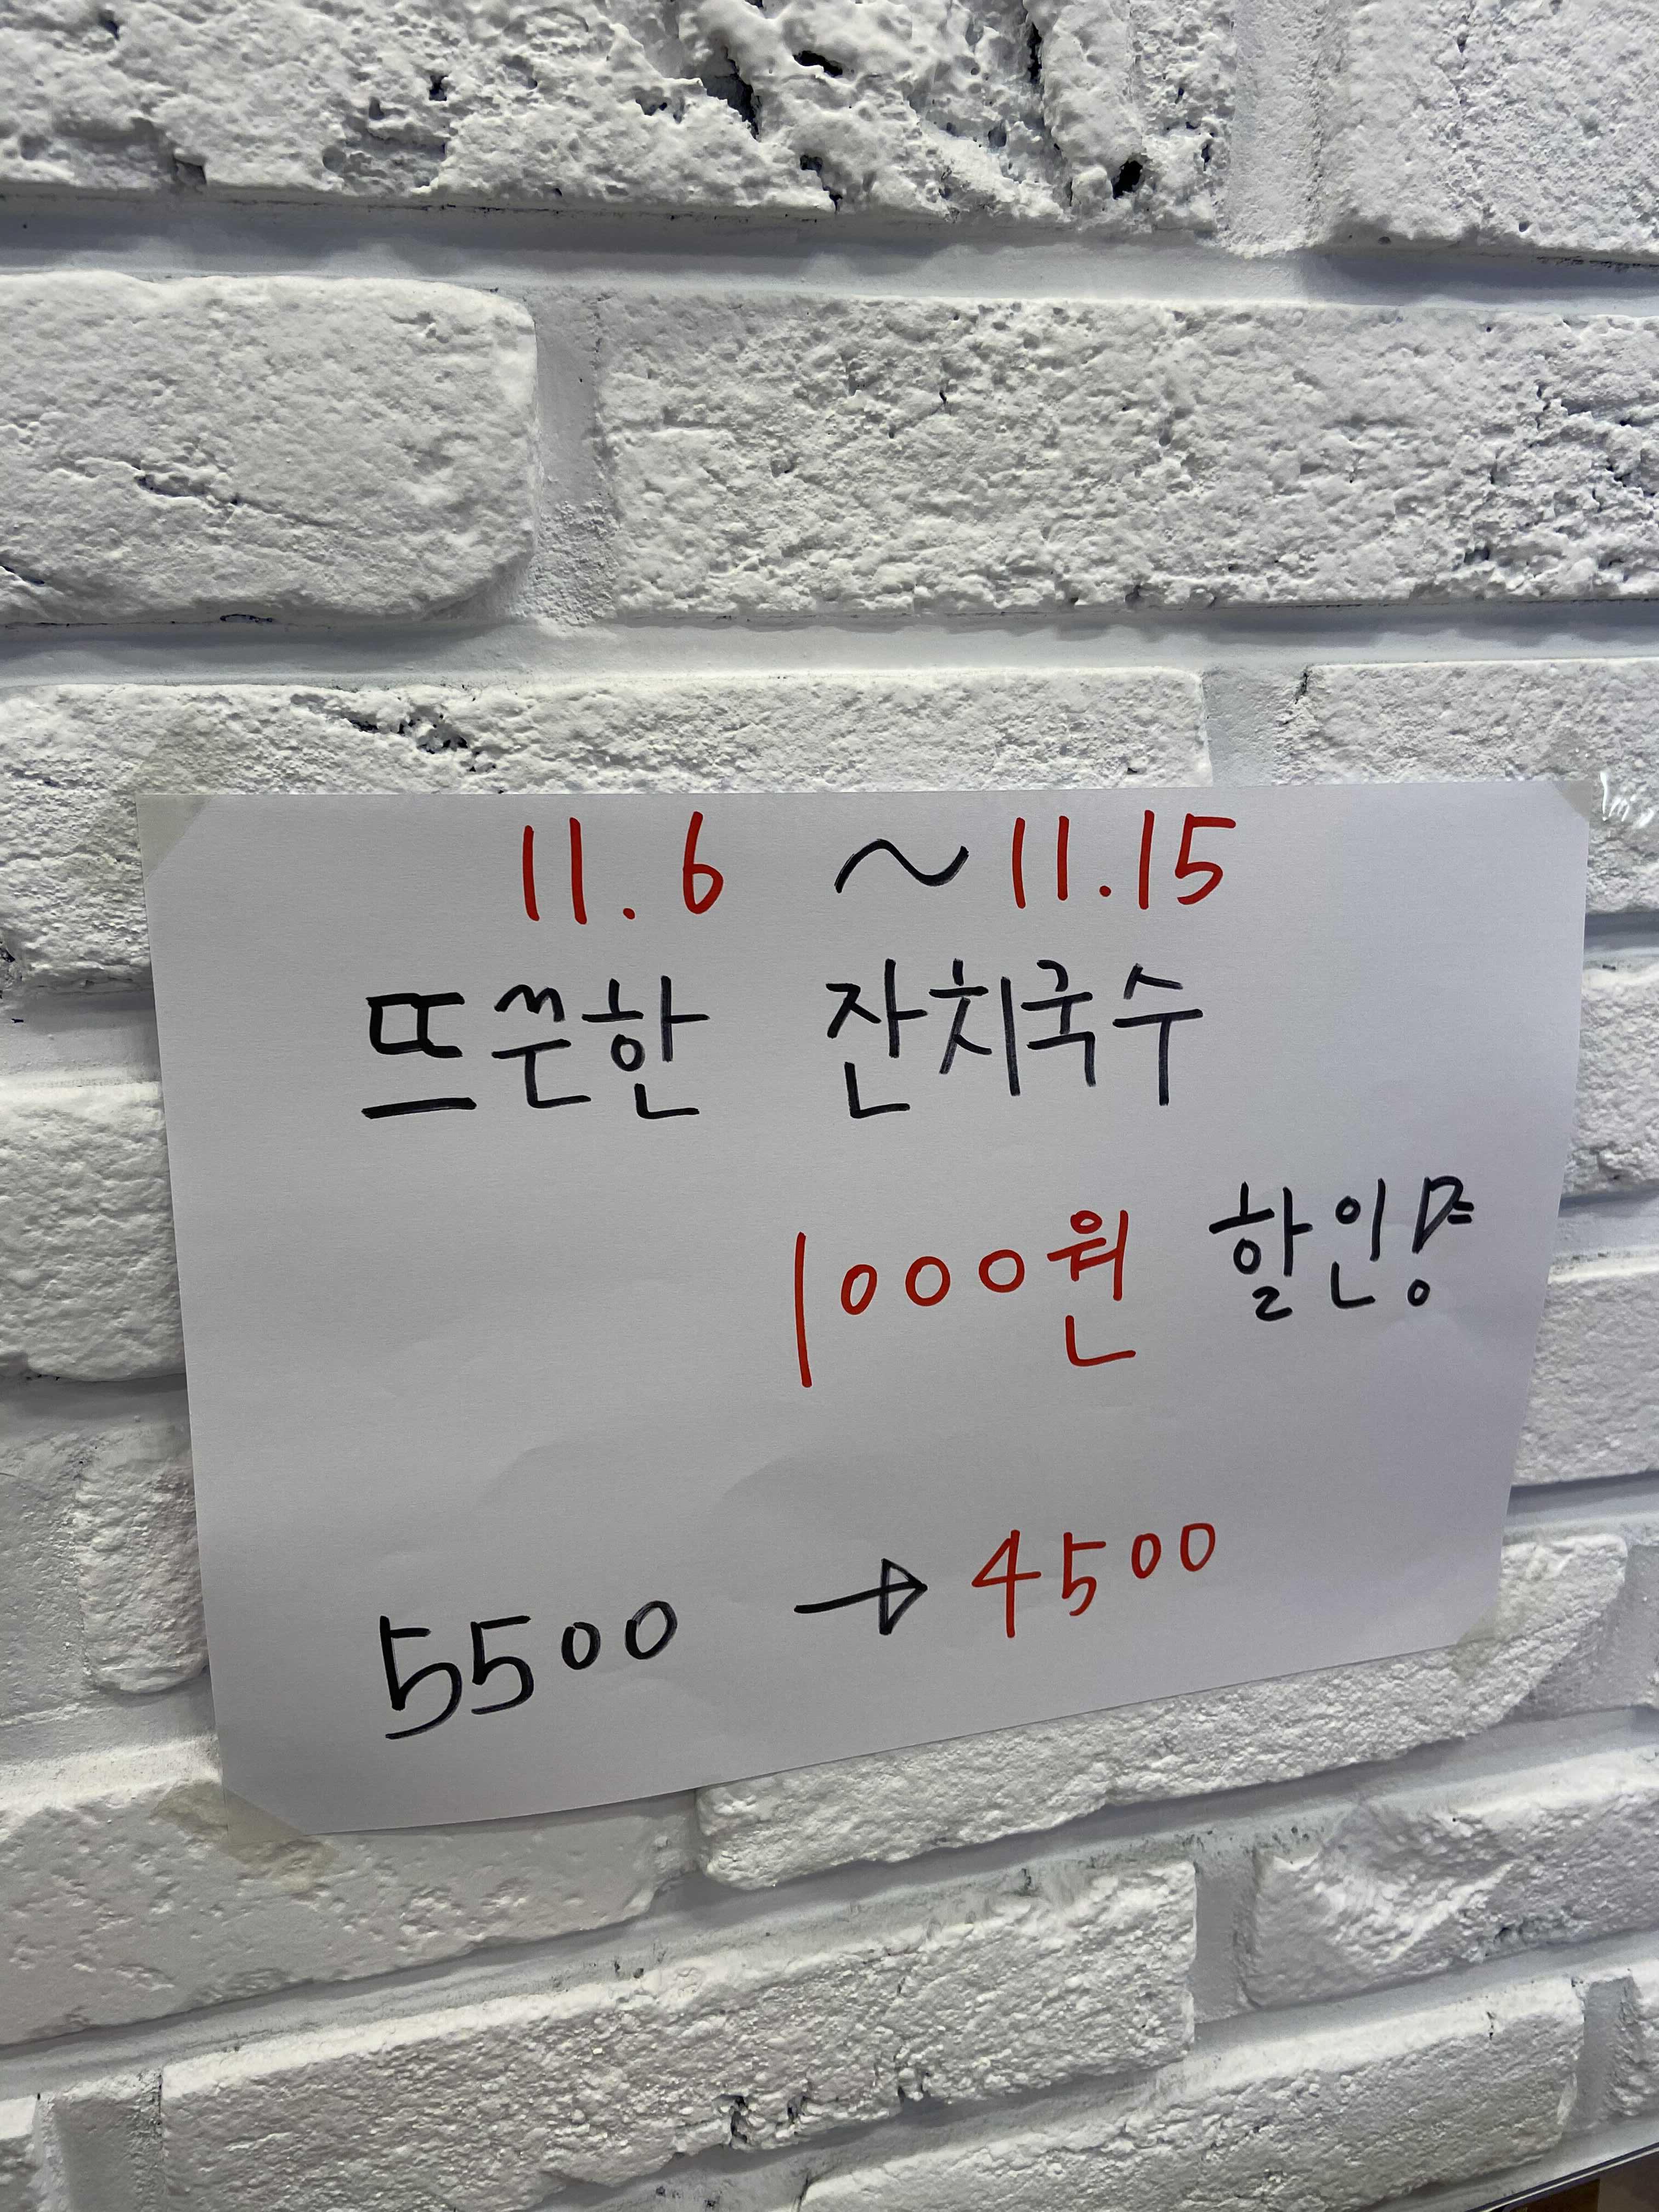 11.6 ~ 11.15
뜨쯘한 잔치국수
1000원 할인행
5500 → 4500